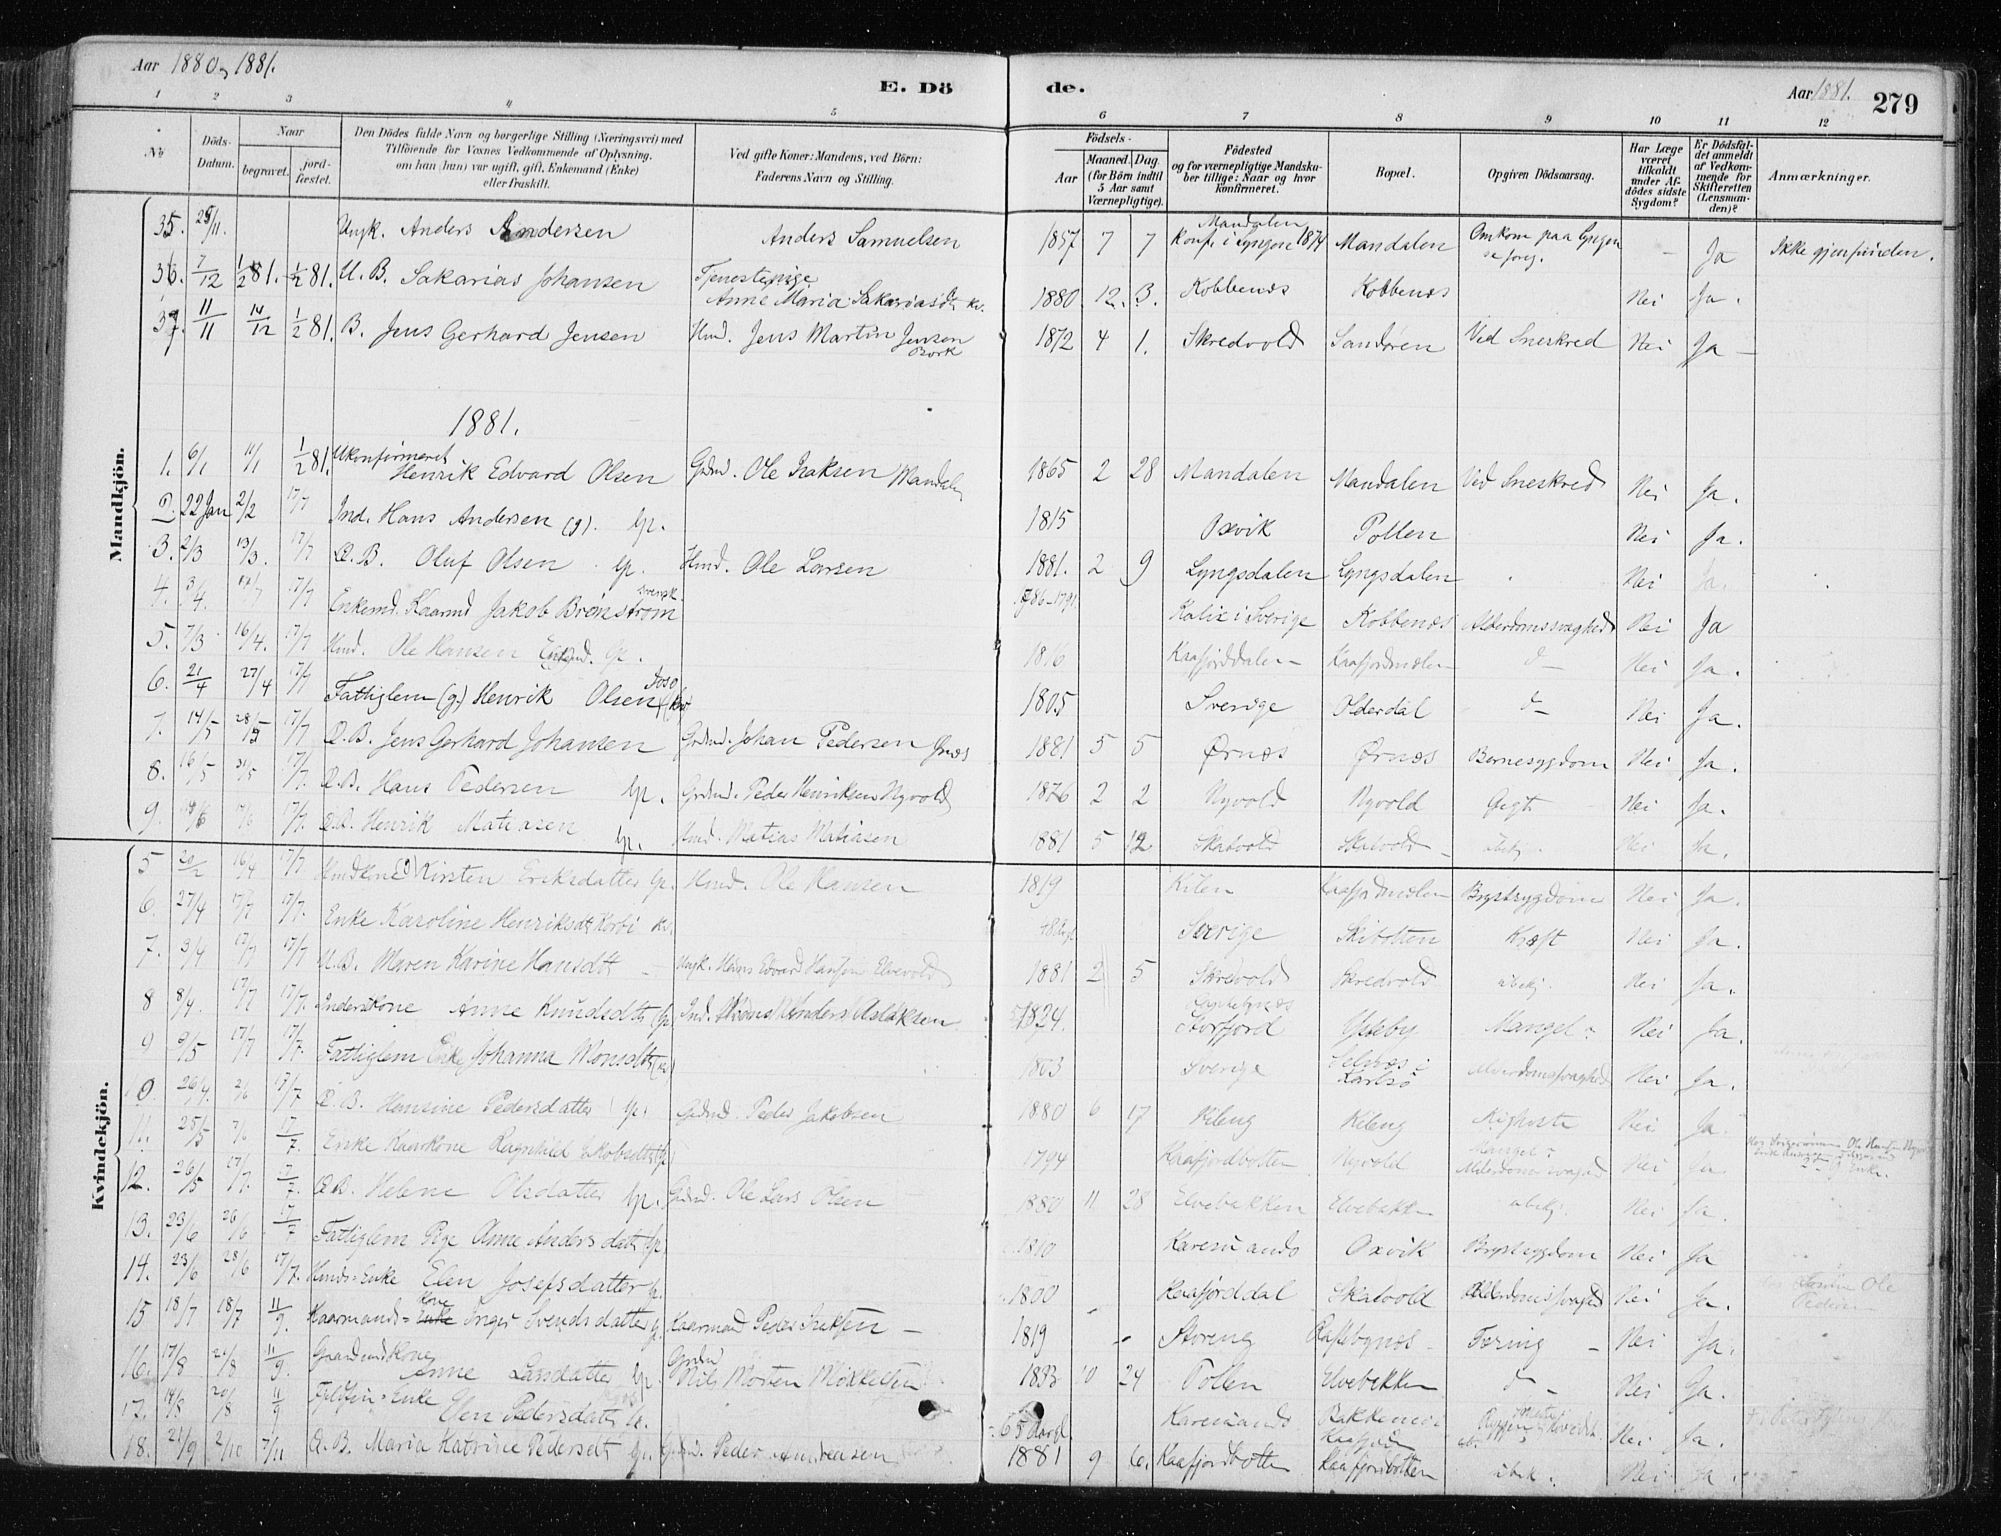 Aar 1880 og 1881.
E. Dö
de.
Aar 1881.
279
1 2 3 4 5 6 7 8 9 10 11 12
No
Döds-Datum.
Naar
begravet.
jord-fæstet.
Den Dödes fulde Navn og borgerlige Stilling (Næringsvei) med
Tilföiende for Voxnes Vedkommende af Oplysning,
om han (hun) var ugift, gift, Enkemand (Enke)
eller fraskilt.
Ved gifte Koner: Mandens, ved Börn:
Faderens Navn og Stilling.
Födsels-
Aar
Maaned. Dag.
(for Börn indtil
5 Aar samt
Værnepligtige).
Födested
og for værnepligtige Mandska-
ber tillige: Naar og hvor
konfirmeret.
Bopæl.
Opgiven Dödsaarsag.
Har Læge
været
tilkaldt
under Af-
dödes sidste
Sygdom?
Er Dödsfal-
det anmeldt
af Vedkom-
mende for
Skifteretten
(Lensman-
den)?
Anmærkninger.
Mandkjön.
35. 25/11. Ungk. Anders Andersen Anders Samuelsen 1857 7 7 Mandalen Konf. i Lyngen 1874 Mandalen Omkom paa Lyngen - Ja Ikke gjenfunden.
36. 7/12 1/2 81. 1/2 81. U.B. Sakarias Johansen Tjenestepige Anne Maria Sakariasdt kv. 1880. 12. 3. Kobbenæs Kobbenæs Nei Ja.
37. 11/11 14/12 1/2 81. B. Jens Gerhard Jensen Hmd. Jens Martin Jensen 1872 4 1. Skredvold Sandören Ved Sneskred Nei Ja -
1881.
1. 6/1 11/1 1/2 81. Ukonfirmeret Henrik Edvard Olsen Grdmd. Ole Isaksen Mandalen 1865 2 28 Mandalen Mandalen Ved Sneskred Nei Ja.
2. 22 Jan 2/2 17/7 Ind. Hans Andersen (g). Lp. 1815 Oxvik Pollen Nei Ja.
3. 2/3 13/3. 17/7 Æ.B. Oluf Olsen Lp. Hmd. Ole Larsen 1881. 2 9 Lyngsdalen Lyngsdalen Nei Ja.
4. 3/4. 17/7 17/7 Enkemd. Kaarmd Jakob Brønström svensk 1786-1791. Kalix i Sverige Kobbenæs Alderdomssvaghed Nei Ja
5. 7/3 16/4. 17/7 Hmd. Ole Hansen Lp. 1816 Kaafjorddalen Kaafjordmælen d- Nei Ja.
6. 21/4 27/4 17/7 Fattiglem (g.) Henrik Olsen 1805 Sverige Olderdal d- Nei Ja.
7. 14/5 28/5 17/7 Æ.B. Jens Gerhard Johansen Grdmd. Johan Pedersen Ørnæs 1881 5 5 Ørnæs Ørnæs Børnesygdom Nei Ja.
8. 16/5 21/5 17/7. Æ.B. Hans Pedersen Lp. Grdmd. Peder Henriksen Nyvold 1876 2 2 Nyvold Nyvold Gigt Nei Ja.
9. 17/6 17/7. Æ.B. Henrik Matiasen Lp. Hmd. Matias Matiasen 1881 5 12 Skatvold Skatvold ubekj. Nei Ja.
Kvindekjön.
5 20/2 16/4 17/7 Kirsten Eriksdatter Lp. Hmd. Ole Hansen 1819 Kilen Kaafjordmælen Brystsygdom Nei Ja.
6. 27/4 17/7 17/7. Enke Karoline Henriksdt Korbi kv. Sverige Skibotten Kræft Nei Ja.
7. 3/4 17/7 17/7 U.B. Maren Karine Hansdt - Ungk. Hans Edvard Hansen Elvevold 1881 2 5 Skredvold Skredvold ubekj. Nei Ja.
8 8/4. 17/7 17/7. Inderstkone Anne Knudsdtr Lp. Ind. Anders Aslaksen 1824. Storfjord Ysteby Mangel Nei Ja.
9 9/5 17/7 17/7. Fattiglem Enke Johanna Monsdt (kv) 1803 Sverige Karlsö Alderdomssvaghed Nei Ja.
10. 26/4. 2/6 17/7 Æ.B. Hansine Pedersdatter Lp. Grdmd. Peder Jakobsen 1880 6 17 Kileng Kileng Kighoste Nei Ja.
11. 25/5 7/6 17/7 Enke Kaarkone Ragnhild Jakobsdt Lp 1794 Kaafjordbotten Nyvold Mangel Alderdomssvaghed Nei Ja
12. 26/5 17/7 17/7. Æ.B. Helene Olsdatter Lp. Grdmd. Ole Lars Olsen 1880 11 28 Elvebakken Elvebakken ubekj. Nei Ja.
13. 23/6 26/6 17/7 Fattiglem Pige Anne Andersdatt Lp. 1810 Karesuando Oxvik Brystsygdom Nei Ja
14. 23/6 28/6 17/7. Hmds-Enke Elen Josefsdatter Lp. 1800 Kaafjorddal Skatvold Alderdomssvaghed Nei Ja.
15 18/7 18/7 11/9. Kaarmands-Enke Kone Inger Svendsdatter Lp Kaarmand Peder Isaksen - 1819 - Storeng Tæring - Nei Ja.
16. 17/8 21/8 11/9. Gaardmdkone Anne Larsdatter Lp. Grdmd Nils Morten Mikkelsen 1833 10 24 Pollen Elvebakken d- Nei Ja.
17. 14/8 20/8 11/9 Enke Elen Pedersdatt Lp. 65 Aar gl. Karesuando Bakkemo i Kaafjord Nei Ja.
18. 21/9 2/10 7/11 Æ.B. Maria Katrine Pedersdt Lp. Grdmd. Peder Andreasen 1881 9 6. Kaafjordbotten Kaafjordbotten ubek. Nei Ja.